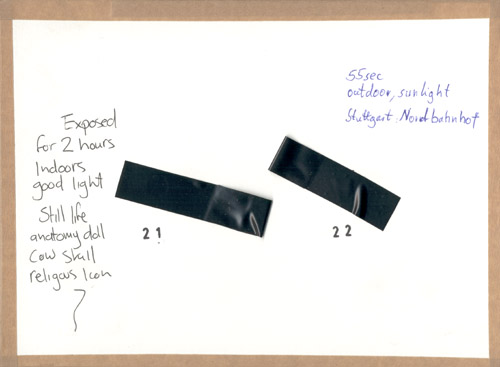 55sec
outdoor, sunlight
Stuttgart. Nordbahnhof
Exposed
for 2 hours
Indoors
good light
Still life
anatomy doll
Cow Skull
religous Icon
21
22